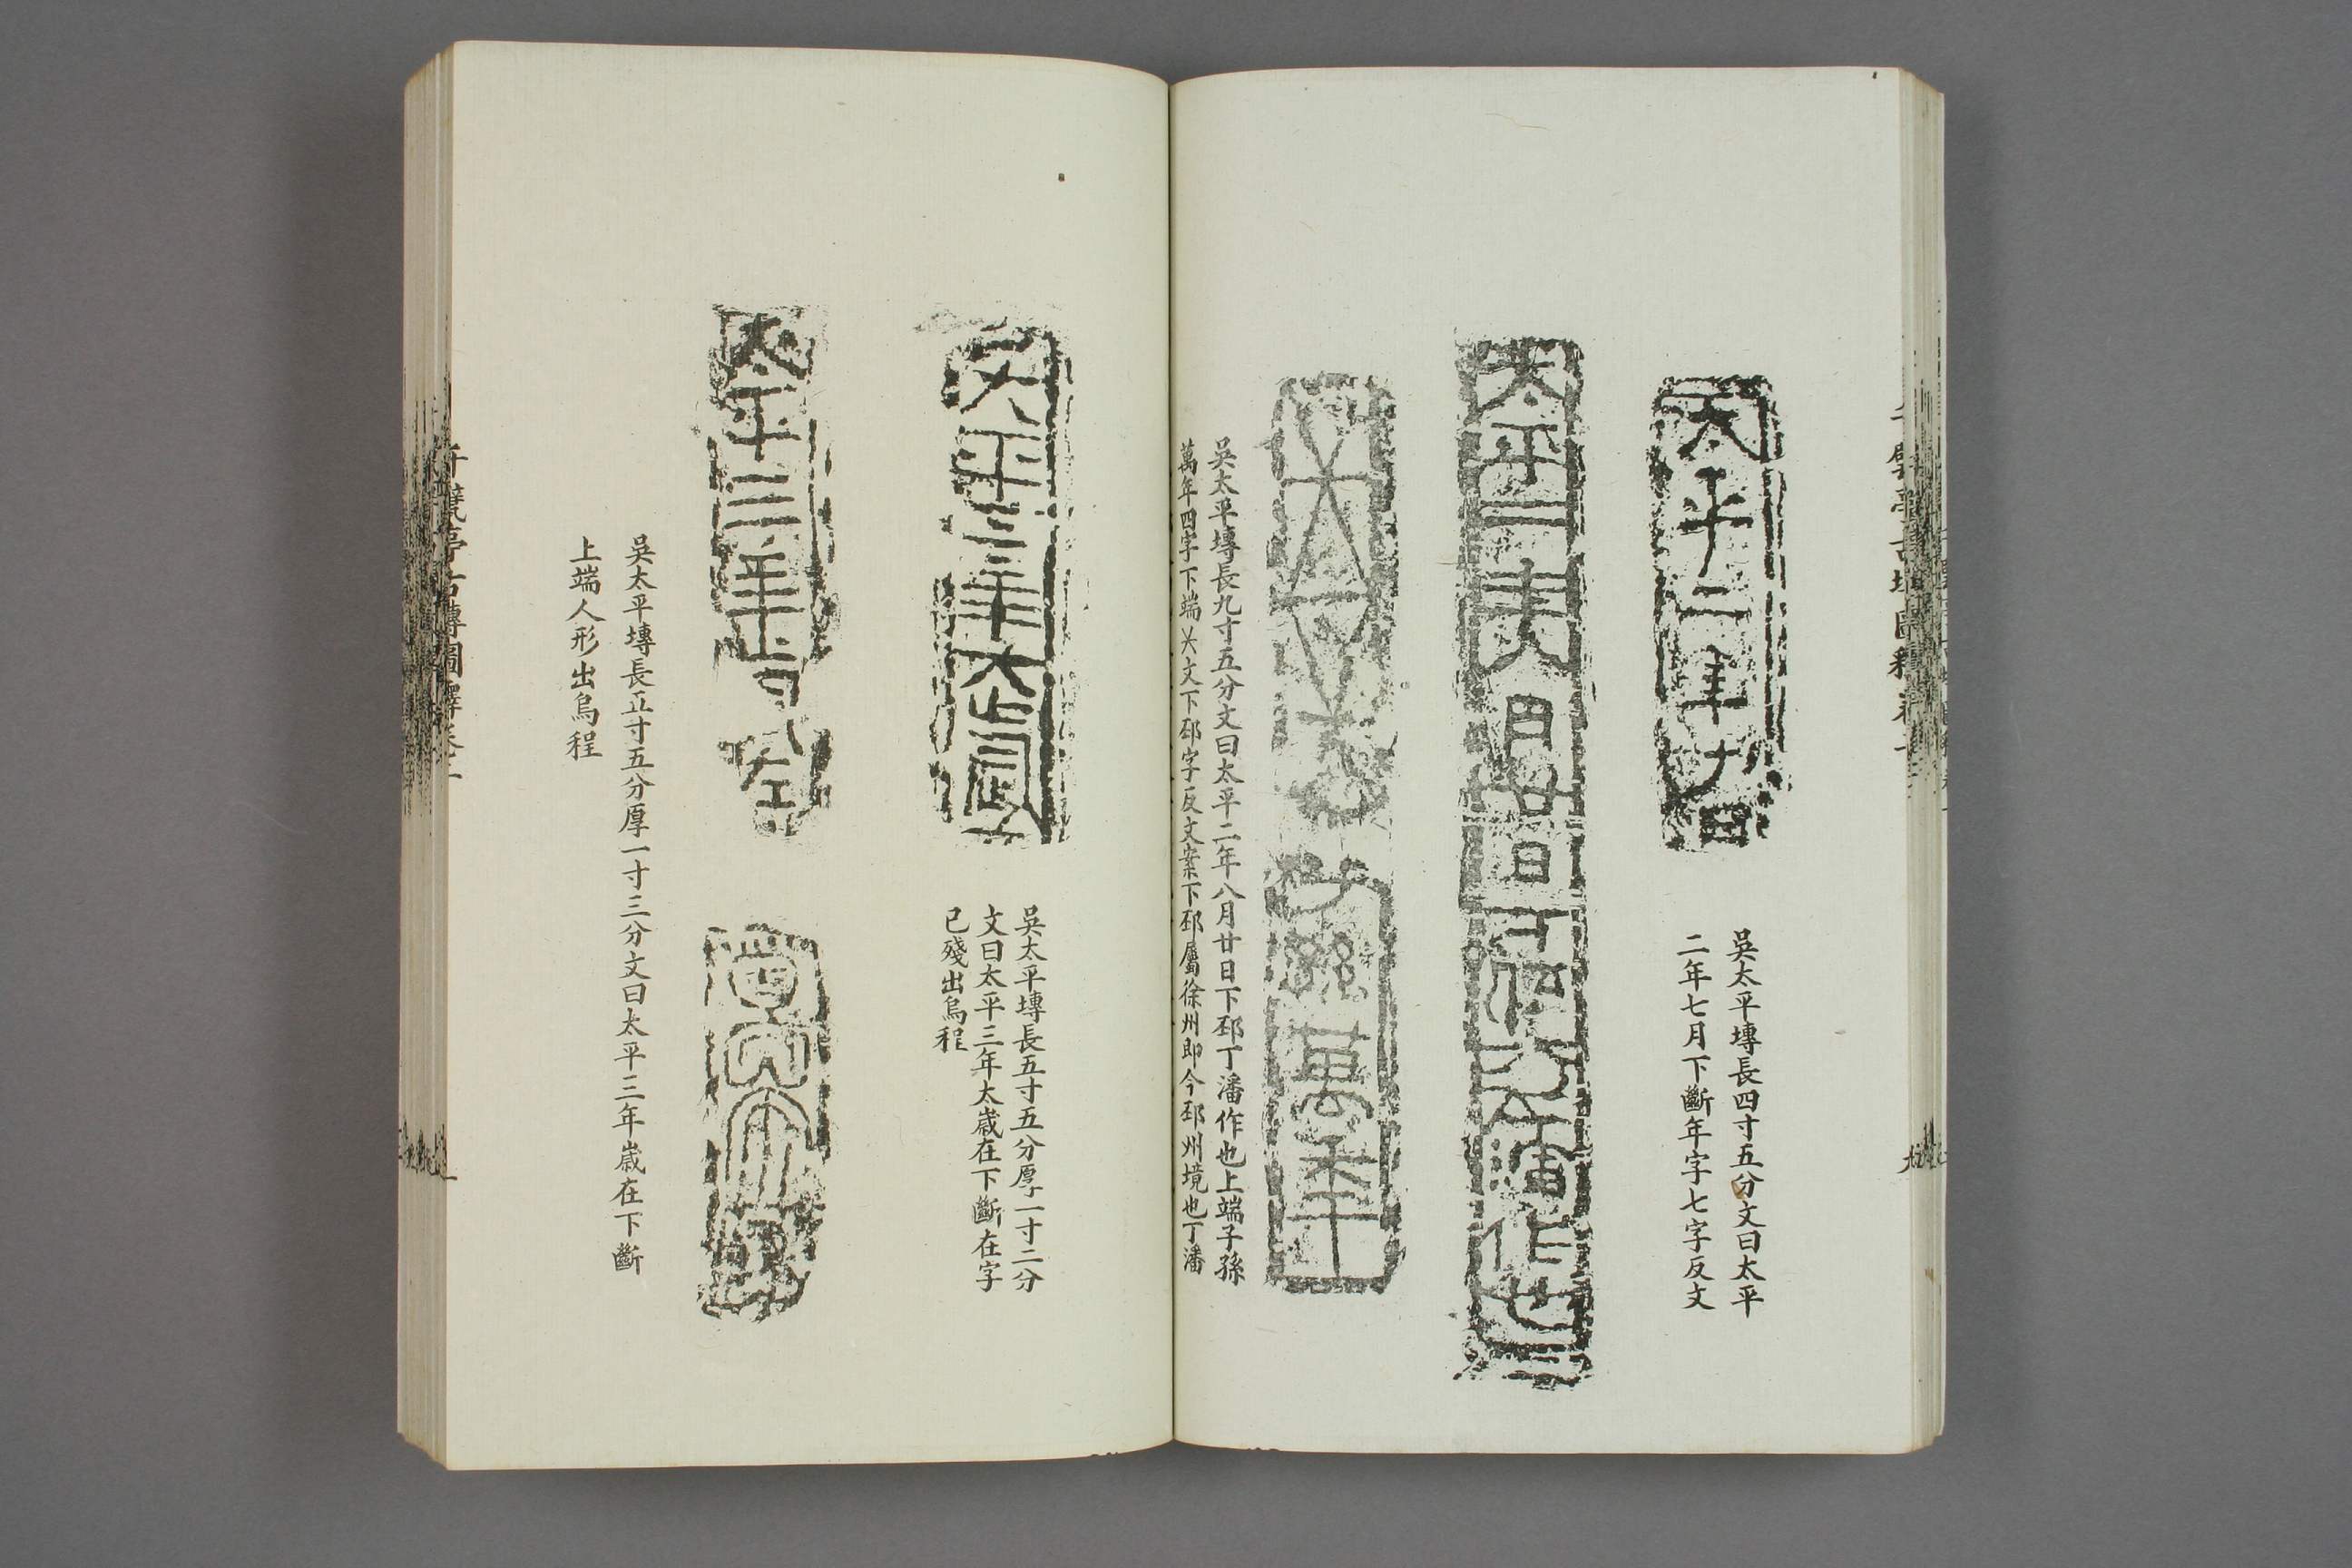 太平二年七月
吳太平塼長四寸五分文曰太平
二年七月下斷年字七字反文
太平二年八月廿日下邳丁潘作也
子孫萬年
吳太平塼長九寸五分文曰太平二年八月廿日下邳丁潘作也上端子孫
萬年四字下端㐅文下邳字反文案下邳屬徐州即今邳州境也丁潘
太平三年太歲在
吳太平塼長五寸五分厚一寸二分
文曰太平三年太歲在下斷在字
已殘出烏程
太平三年歲在
吳太平塼長五寸五分厚一寸三分文曰太平三年歲在下斷
上端人形出烏程
千甓亭古塼圖釋卷二